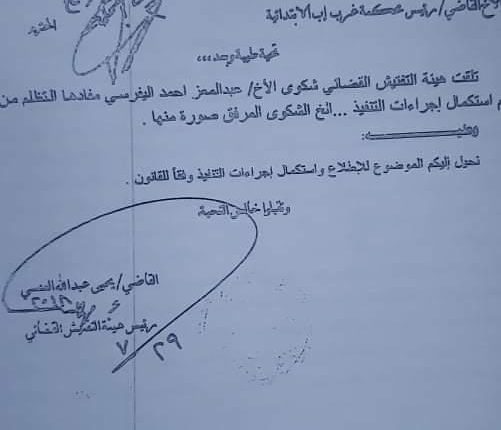 القاضي/ رئيس محكمة غرب إب الابتدائية
المحترم
تحية طيبة وبعد،،،
تلقت هيئة التفتيش القضائي شكوى الأخ/ عبدالمعز احمد اليفرسي مفادها التظلم من
استكمال إجراءات التنفيذ ...الخ الشكوى المرفق صورة منها .
وعليـــــــــه:
نحيل إليكم الموضوع للإطلاع واستكمال إجراءات التنفيذ وفقاً للقانون .
وتقبلوا خالص التحية
القاضي/ يحيى عبدالله
رئيس هيئة التفتيش القضائي
٢٩
٧